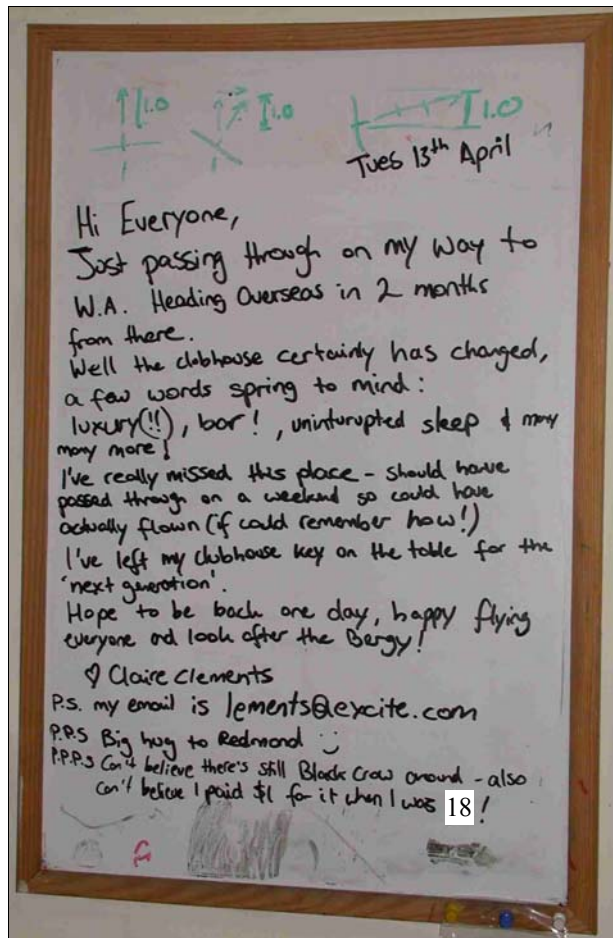 1.0 1.0 1.0
Tues 13th April
Hi Everyone,
Just passing through on my way to
W.A. Heading Overseas in 2 months
from there.
Well the clubhouse certainly has changed,
a few words spring to mind:
luxury(!!), bar!, uninturupted sleep & many
many more!
I've really missed this place - should have
passed through on a weekend so could have
actually flown (if could remember how!)
I've left my clubhouse key on the table for the
'next generation'.
Hope to be back one day, happy flying
everyone and look after the Bergy!
♡ Claire Clements
P.S. my email is lements@excite.com
P.P.S Big hug to Redmond :)
P.P.P.S Can't believe there's still Black Crow around - also
can't believe I paid $1 for it when I was 18!